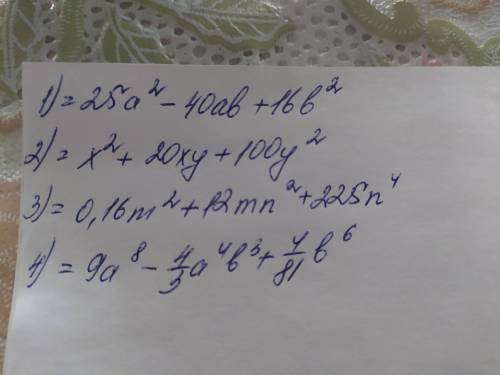 1) = 25a² - 40ab + 16b²
2) = x² + 20xy + 100y²
3) = 0,16m² + 12mn² + 225n⁴
4) = 9a⁸ - 4/3 a⁴b³ + 4/81 b⁶